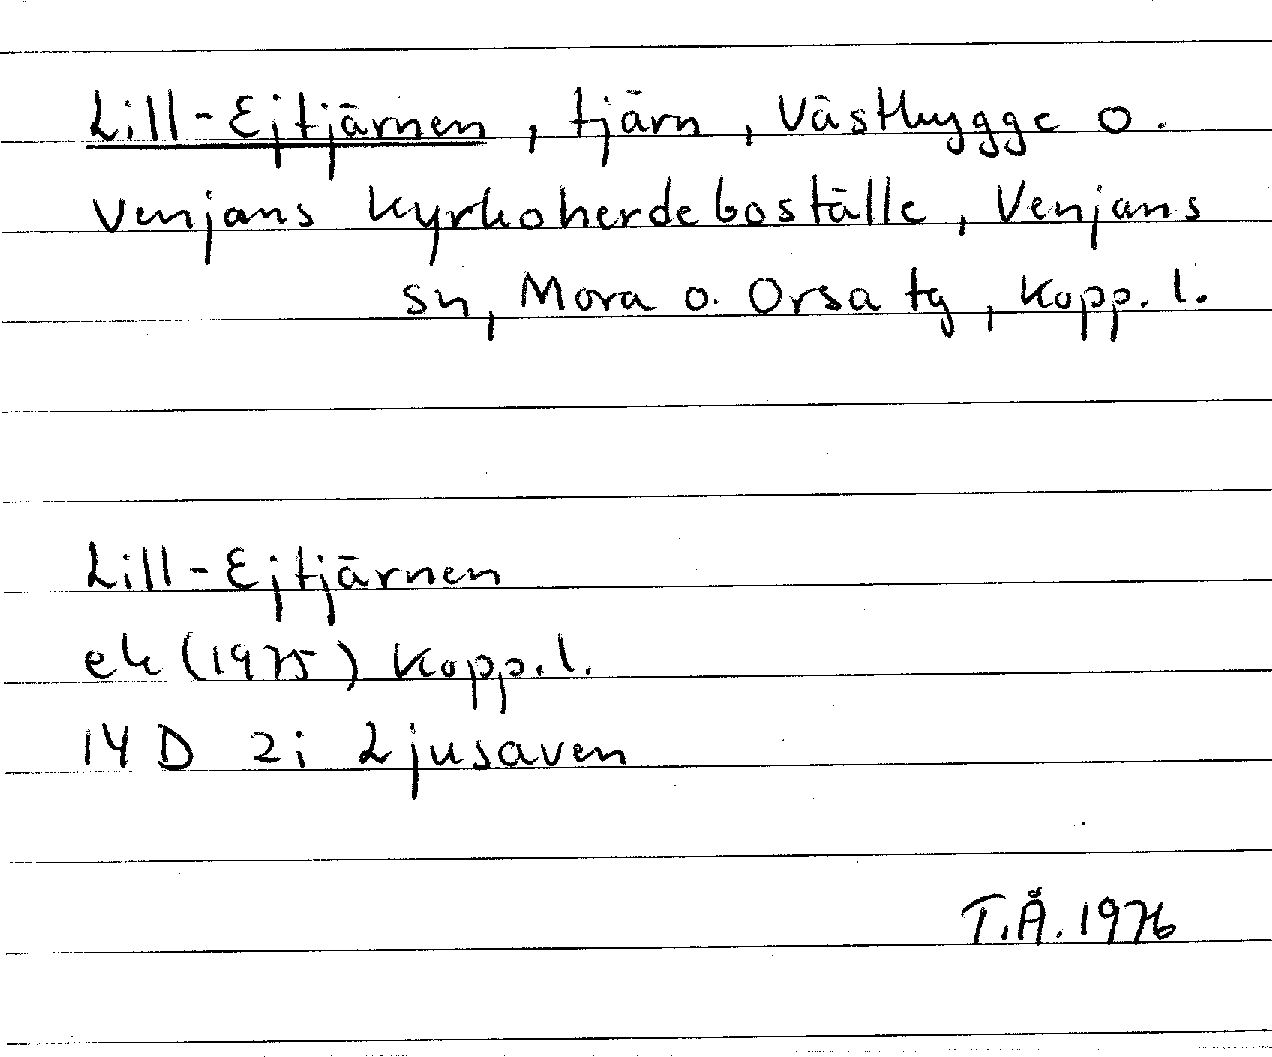 Lill-Ejtjärnen, tjärn, Västbygge o.
Venjans kyrkoherdeboställe, Venjans
sn, Mora o. Orsa tg, Kopp. l.
Lill-Ejtjärnen
ek (1975) Kopp. l.
14 D 2i Ljusaven
T.Å. 1976